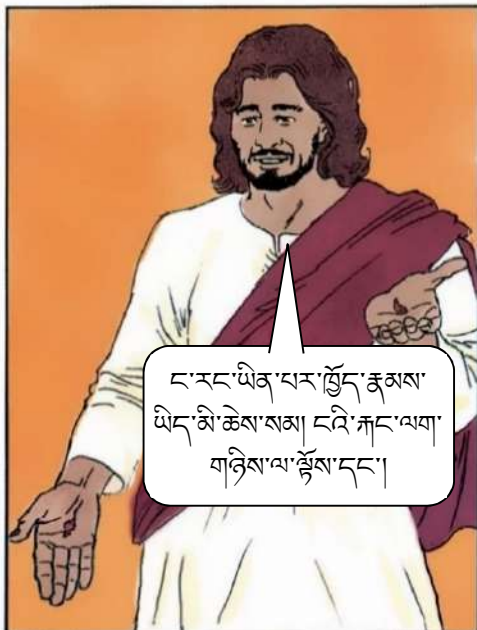 ང་རང་ཡིན་པར་ཁྱོད་རྣམས་
ཡིད་མི་ཆེས་སམ། ངའི་རྐང་ལག་
གཉིས་ལ་ལྟོས་དང་།